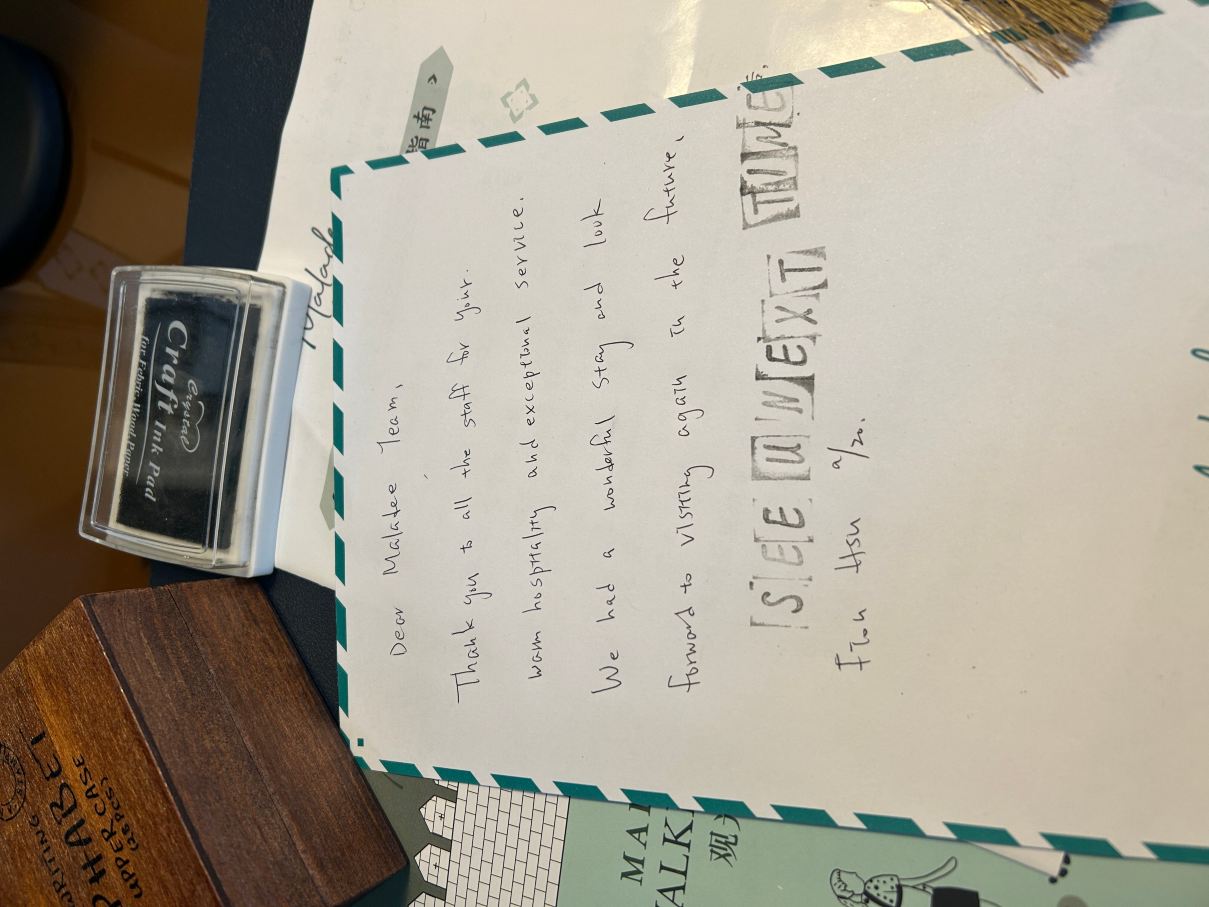 Dear Maladee Team,
Thank you to all the staff for your.
warm hospitality and exceptional service.
We had a wonderful stay and look
forward to visiting again in the future.
SEE U NEXT TIME.
Hsu 2/20.
Crystal
Craft Ink Pad
for Fabric Wood Paper
Malade
指南
WRITING
PHABET
UPPER CASE
(28 PCS)
MAI
ALK
观